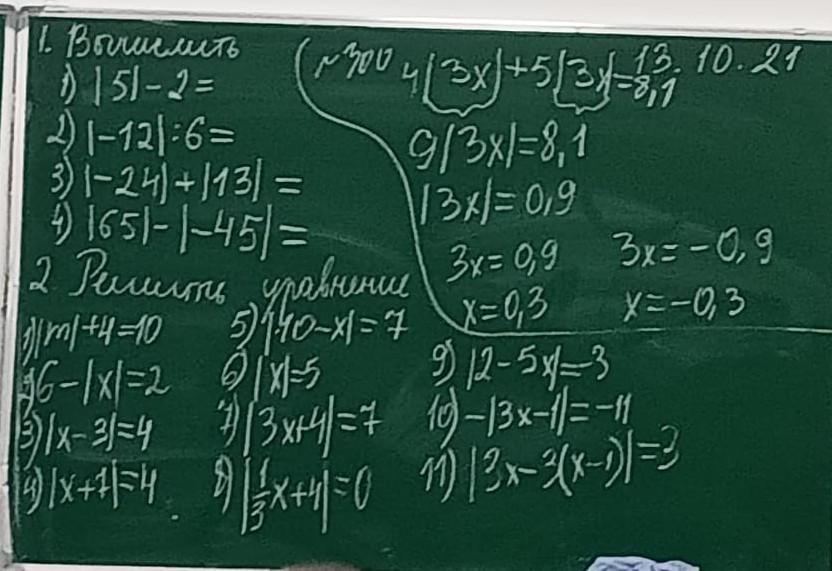 1. Вычислить
1) |5| - 2 =
2) |-12| : 6 =
3) |-24| + |13| =
4) |65| - |-45| =
2 Решить уравнение
1) |m| + 4 = 10
2) 6 - |x| = 2
3) |x - 3| = 4
4) |x + 7| = 4
5) |40 - x| = 7
6) |x| = 5
7) |3x + 4| = 7
8) |1/3 x + 4| = 0
9) |2 - 5x| = -3
10) -|3x - 1| = -11
11) |3x - 3(x - 1)| = 3
13. 10. 21
№300 4|3x| + 5|3x| = 8,1
9|3x| = 8,1
|3x| = 0,9
3x = 0,9 3x = -0,9
x = 0,3 x = -0,3